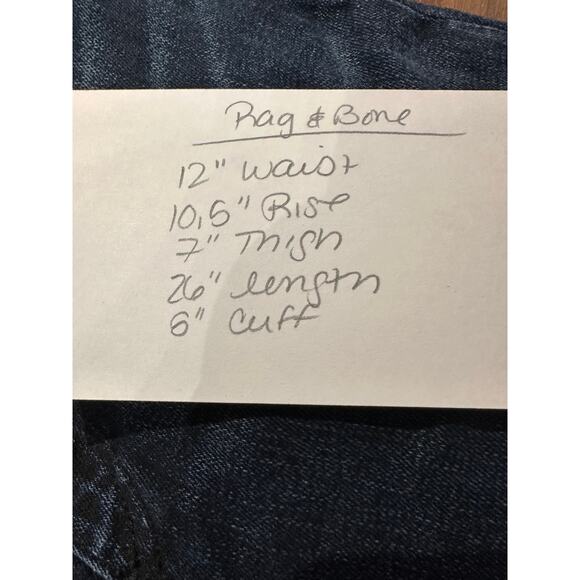 Rag & Bone
12" Waist
10,5" Rise
7" Thigh
26" length
5" Cuff